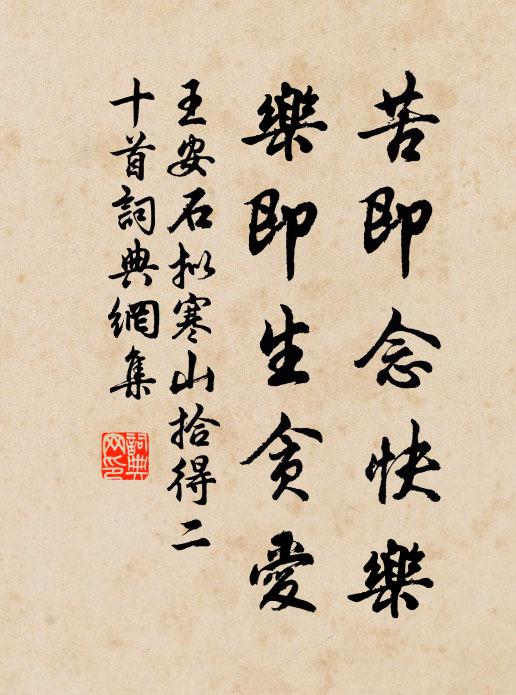 苦即念快樂
樂即生貪愛
王安石拟寒山拾得二
十首詞典網集
詞典
网印